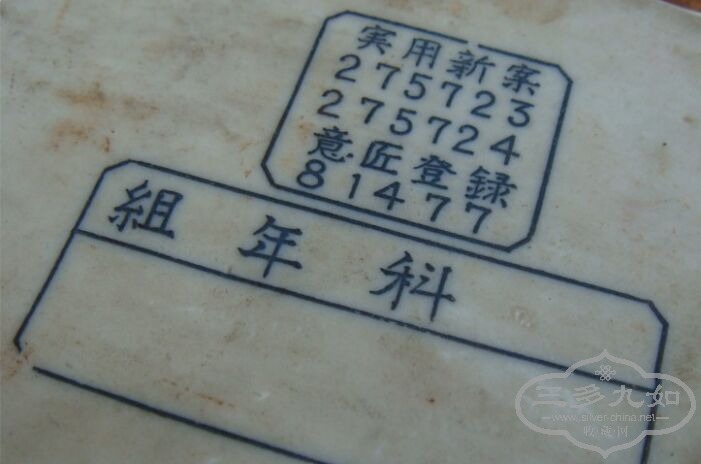 実用新案
275723
275724
意匠登録
81477
組年科
三多九如
www.silver-china.net
收藏网